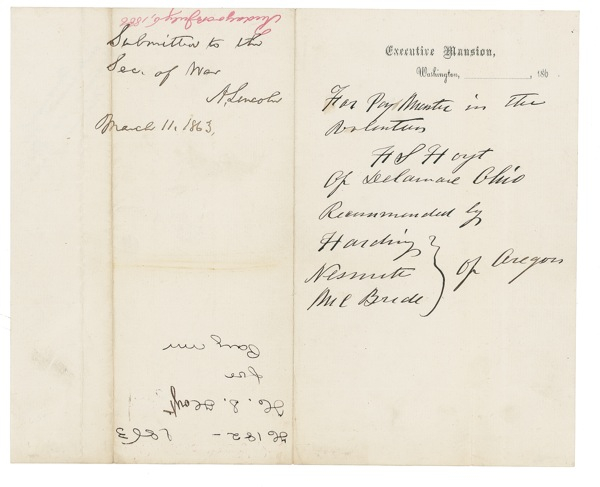 July 5, 1866
Submitted to the
Sec. of War
A. Lincoln
March 11, 1863.
H 182 - 1863
H. S. Hoyt
for
Executive Mansion,
Washington, , 186
For Pay Master in the
Volunteers
H S Hoyt
Of Delaware Ohio
Recommended by
Harding
Nesmith
Mc Bride
Of Oregon